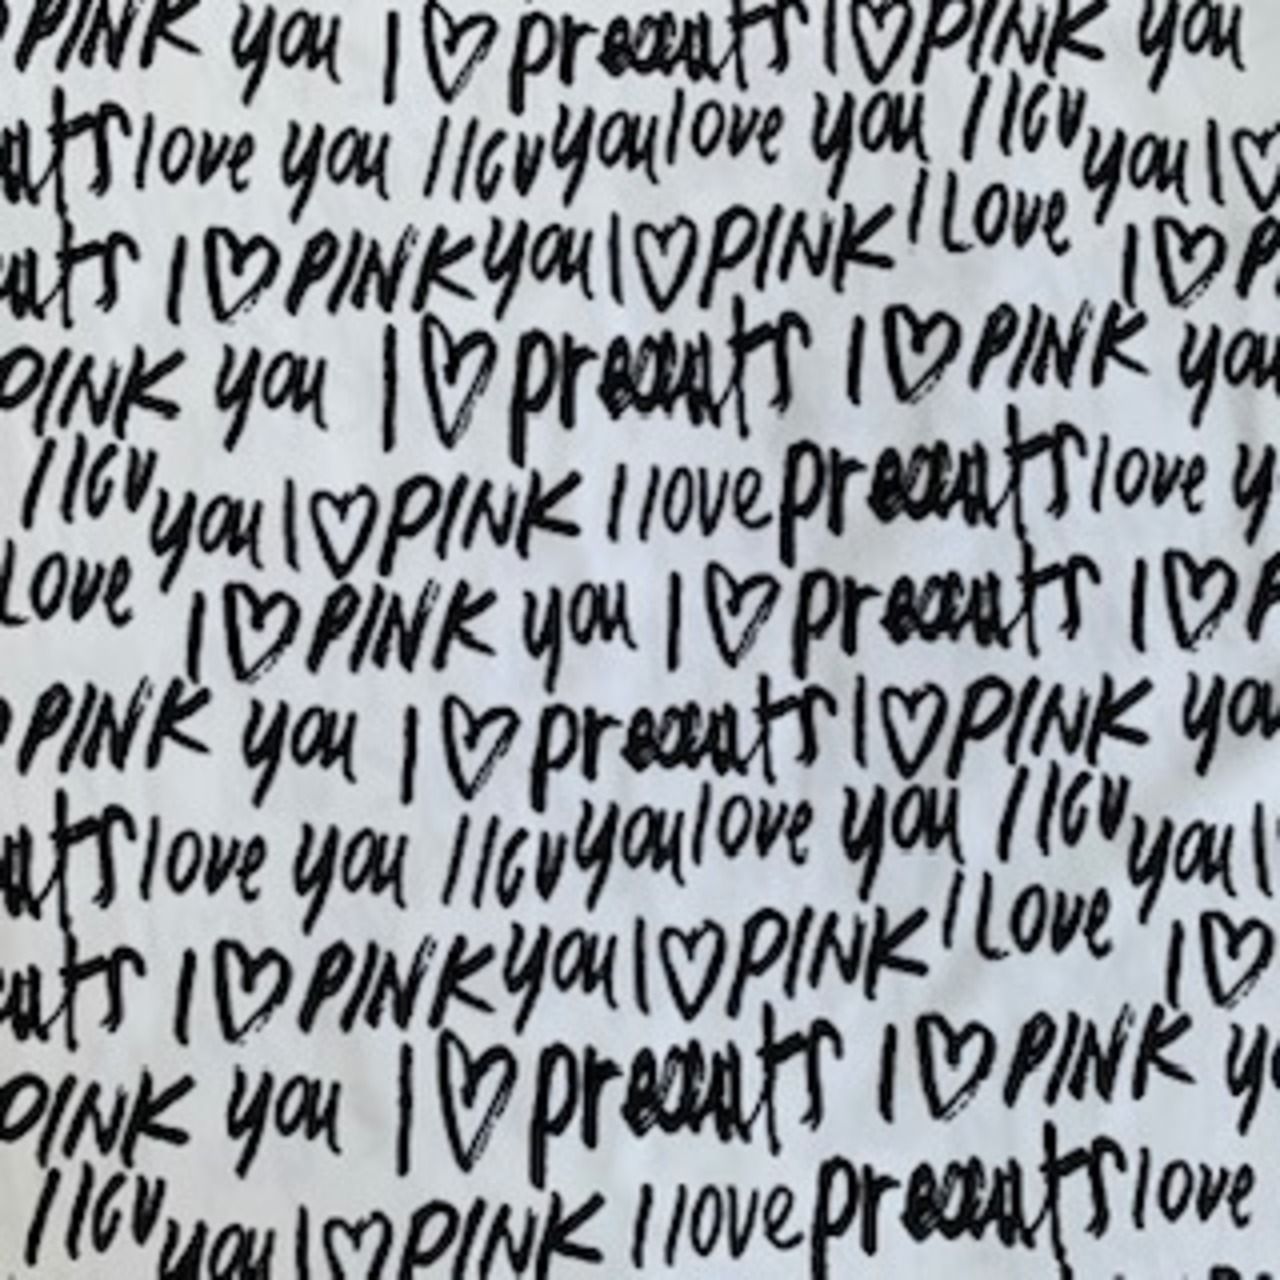 PINK you I ♡ presents I ♡ PINK you
love you I lov you love you I lov you I ♡
I ♡ PINK you I ♡ PINK I Love I ♡
PINK you I ♡ presents I ♡ PINK you
I lov you I ♡ PINK I love presents love
Love I ♡ PINK you I ♡ presents I ♡
PINK you I ♡ presents I ♡ PINK you
love you I lov you love you I lov you I
I ♡ PINK you I ♡ PINK I Love I ♡
PINK you I ♡ presents I ♡ PINK
I lov you I ♡ PINK I love presents love